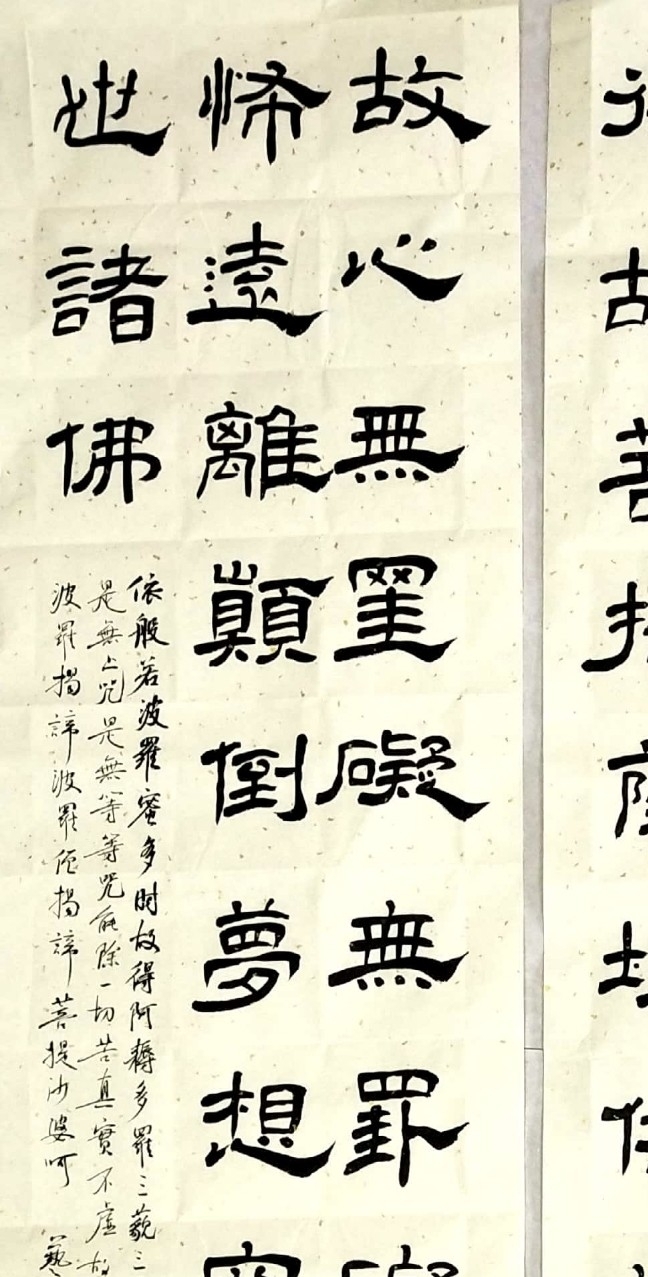 故心無罣礙無罣
怖遠離顛倒夢想
世諸佛
依般若波羅蜜多時故得阿耨多羅三藐三
是無上咒是無等等咒能除一切苦真實不虛故
波羅揭諦波羅僧揭諦菩提沙婆呵 藝